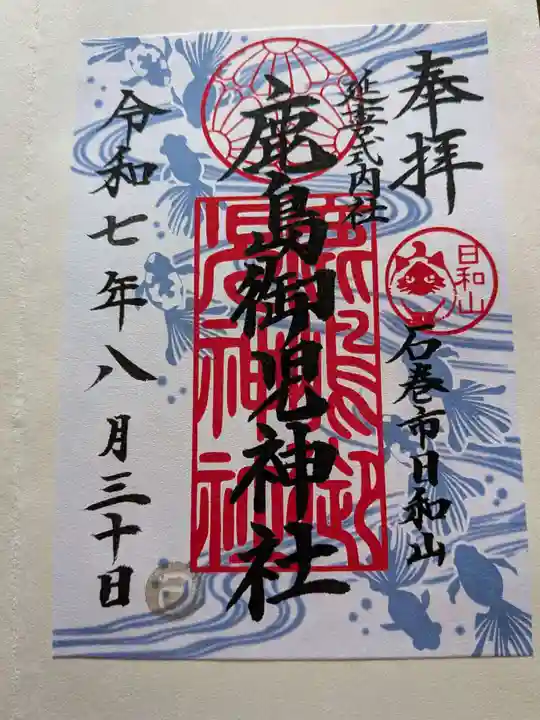 奉拝
延喜式内社
日和山
石巻市日和山
鹿島御児神社
鹿島御児神社
令和七年八月三十日